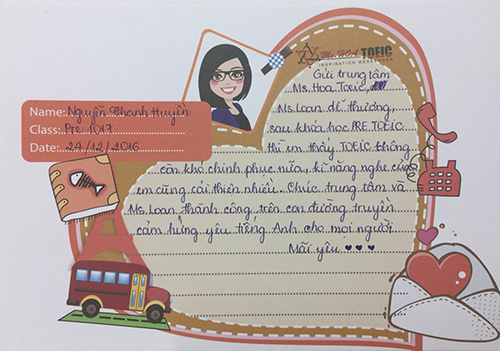 Ms. HOA TOEIC
INSPIRATION MESSENGER
Name: Nguyễn Thanh Huyền
Class: Pre 1017
Date: 24/12/2016
Gửi trung tâm
Ms. Hoa Toeic,
Ms. Loan dễ thương,
sau khóa học PRE TOEIC
thì em thấy TOEIC không
còn khó chinh phục nữa, kĩ năng nghe của
em cũng cải thiện nhiều. Chúc trung tâm và
Ms. Loan thành công trên con đường truyền
cảm hứng yêu tiếng Anh cho mọi người
Mãi yêu ♥ ♥ ♥